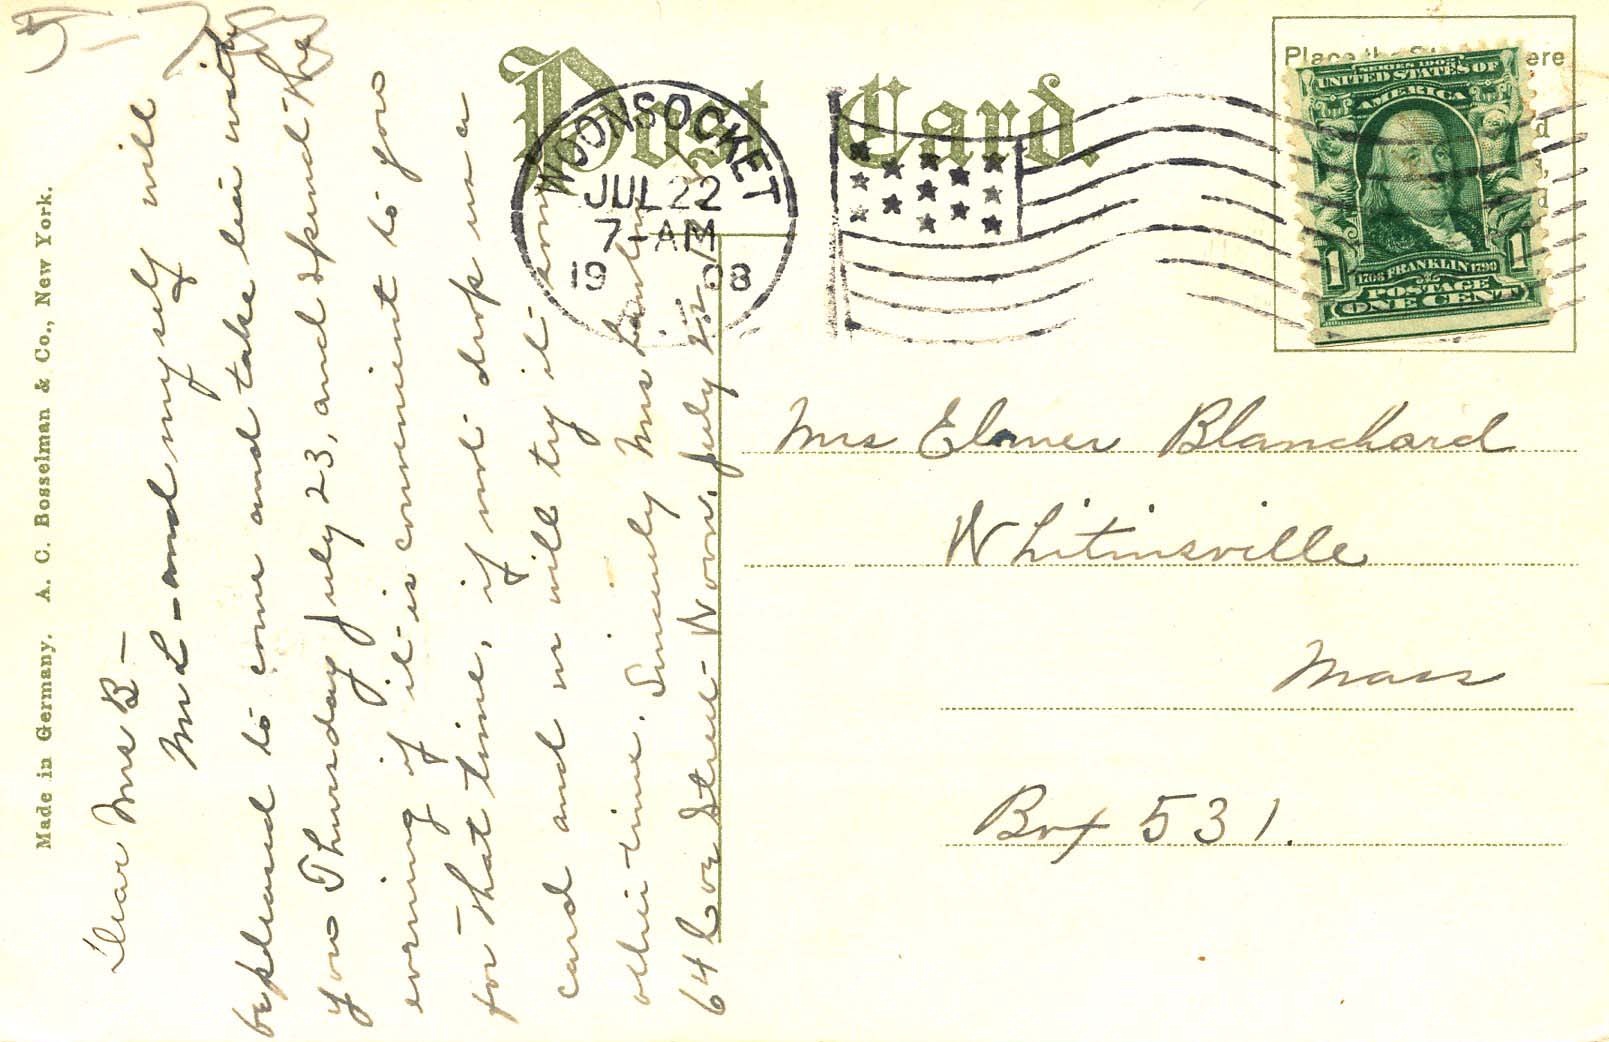 5-7
Post Card.
Place the Stamp Here
WOONSOCKET
JUL 22
7-AM
1908
SERIES 1902
UNITED STATES OF
AMERICA
1706 FRANKLIN 1790
POSTAGE
1 1
ONE CENT
Made in Germany. A. C. Bosselman & Co., New York.
Dear Mrs B-
Mr L- and myself will
be pleased to come and take tea with
you Thursday July 23, and spend the
evening if it is convenient to you
for that time, if not drop us a
card and we will try it some
other time. Sincerely Mrs
64 Coe Street- Woon. July 22
Mrs Elmer Blanchard
Whitinsville
Mass
Box 531.